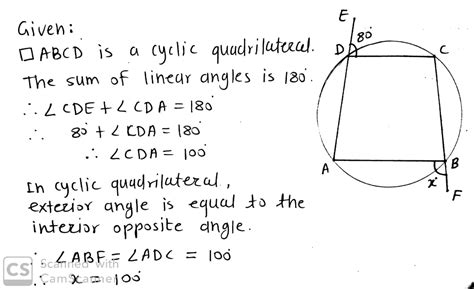 Given:
□ ABCD is a cyclic quadrilateral.
The sum of linear angles is 180°.
∴ ∠CDE + ∠CDA = 180°
∴ 80° + ∠CDA = 180°
∴ ∠CDA = 100°
In cyclic quadrilateral,
exterior angle is equal to the
interior opposite angle.
∴ ∠ABF = ∠ADC = 100°
∴ x = 100°
CS Scanned with
CamScanner
E
80°
D
C
A
B
x°
F